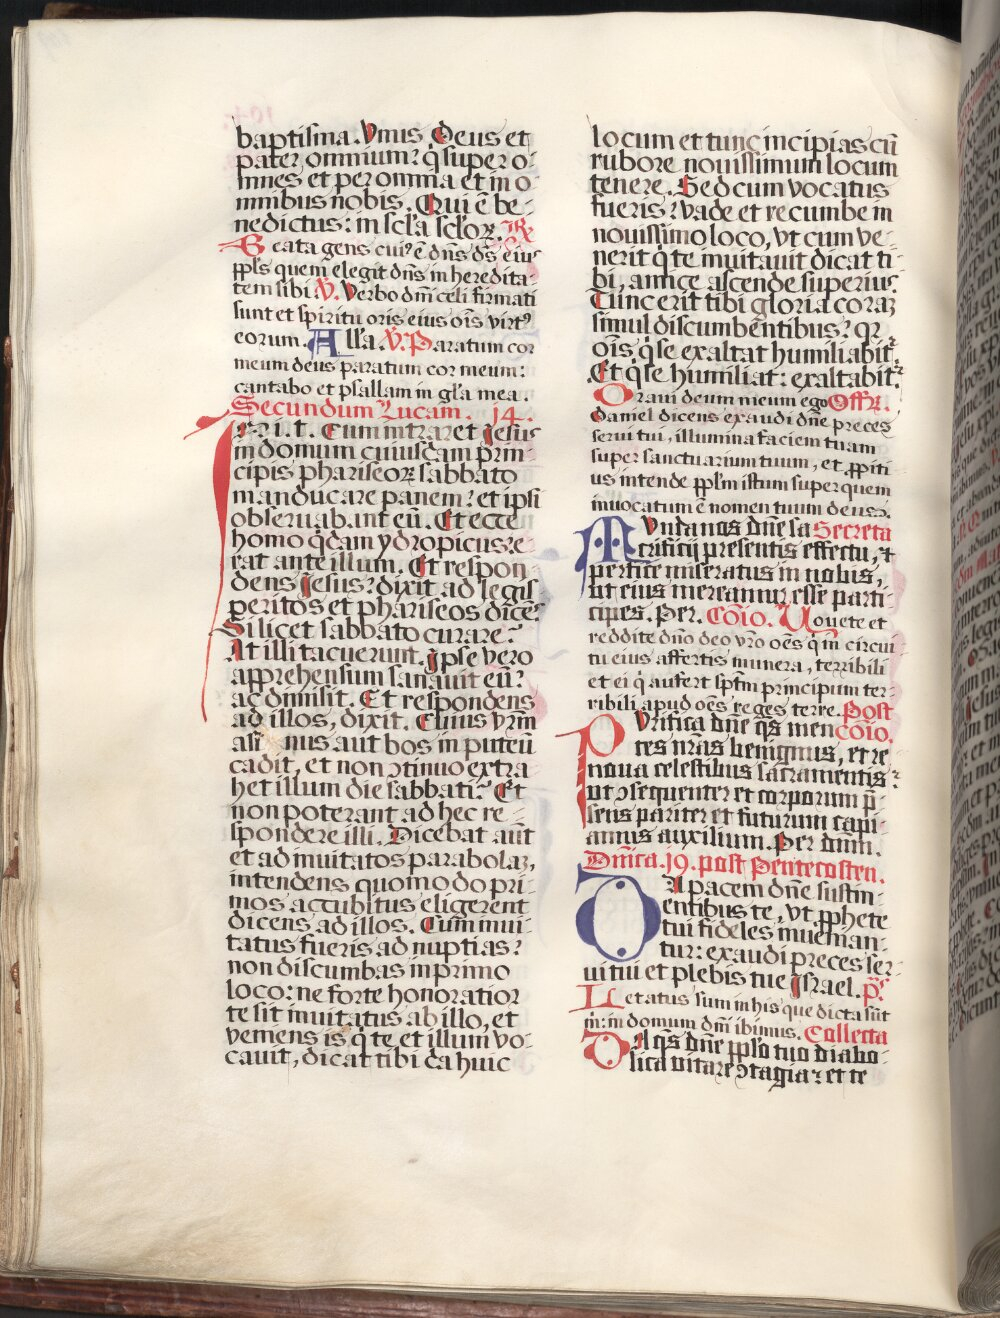 baptisma. Vnus Deus et
pater omnium: q̇ super o-
mnes et per omnia et in o-
mnibus nobis. Qui ē be-
nedictus: in scl̄a scl̄oꝝ. ℞
Beata gens cuiꝰ ē dn̄s ds̄ eiuꝰ
ppl̄s quem elegit dn̄s in heredita-
tem sibi. ℣. Verbo dn̄i celi firmati
sunt et spiritu oris eius oīs virtꝰ
eorum. Alla. ℣. Paratum cor
meum deus paratum cor meum:
cantabo et psallam in gl̄a mea.
Secundum Lucam. 14.
In i. t. Cum intraret Jesus
in domum cuiusdam prin-
cipis phariseoꝝ sabbato
manducare panem: et ipsi
obseruabant eū. Et ecce
homo q̇dam ydropicus e-
rat ante illum. Et respon-
dens Jesus: dixit ad legis
peritos et phariseos dicēs
Si licet sabbato curare?
At illi tacuerunt. Ipse vero
apprehensum sanauit eū:
ac dimisit. Et respondens
ad illos, dixit. Cuius vr̄m
asinus aut bos in puteū
cadit, et non ↄtinuo extra
het illum die sabbati? Et
non poterant ad hec re-
spondere illi. Dicebat aūt
et ad inuitatos parabolaꝫ,
intendens quomodo pri-
mos accubitus eligerent
dicens ad illos. Cum inui-
tatus fueris ad nuptias:
non discumbas in primo
loco: ne forte honoratior
te sit inuitatus ab illo, et
veniens is q̇ te et illum vo-
cauit, dicat tibi da huic
locum et tunc incipias cū
rubore nouissimum locum
tenere. Sed cum vocatus
fueris: vade et recumbe in
nouissimo loco, vt cum ve-
nerit q̇ te inuitauit dicat ti-
bi, amice ascende superius.
Tunc erit tibi gloria coraꝫ
simul discumbentibus: qꝛ
oīs q̇ se exaltat humiliabit̉.
Et q̇ se humiliat: exaltabit̉.
Oraui deum meum ego Offꝛ.
daniel dicens exaudi dn̄e preces
serui tui, illumina faciem tuam
super sanctuarium tuum, et ꝓpiti
us intende ppl̄m istum super quem
inuocatum ē nomen tuum deus.
Mundanos dn̄e sa Secreta
crificij presentis effectu, ⁊
perfice miseratus in nobis,
ut eius mereamur esse parti-
cipes. Per. Cōio. Vouete et
reddite dn̄o deo vr̄o oēs q̇ in circui-
tu eius affertis munera, terribili
et ei q̇ aufert spm̄ principum ter-
ribili apud oēs reges terre. Post
Purifica dn̄e qs̄ men cōio.
tes nr̄as benignus, et re
noua celestibus sacramentis:
ut ↄsequenter et corporum p̄-
sens pariter et futurum capi-
amus auxilium. Per dn̄m.
Dn̄ica. 19. post Pentecosten.
Da pacem dn̄e sustin-
entibus te, vt ꝓphete
tui fideles inuenian-
tur: exaudi preces ser-
ui tui et plebis tue Israel. p̄s.
Letatus sum in his que dicta sūt
m̄: in domum dn̄i ibimus. Collecta
Da qs̄ dn̄e ppl̄o tuo diabo-
lica vitare ↄtagia: et te